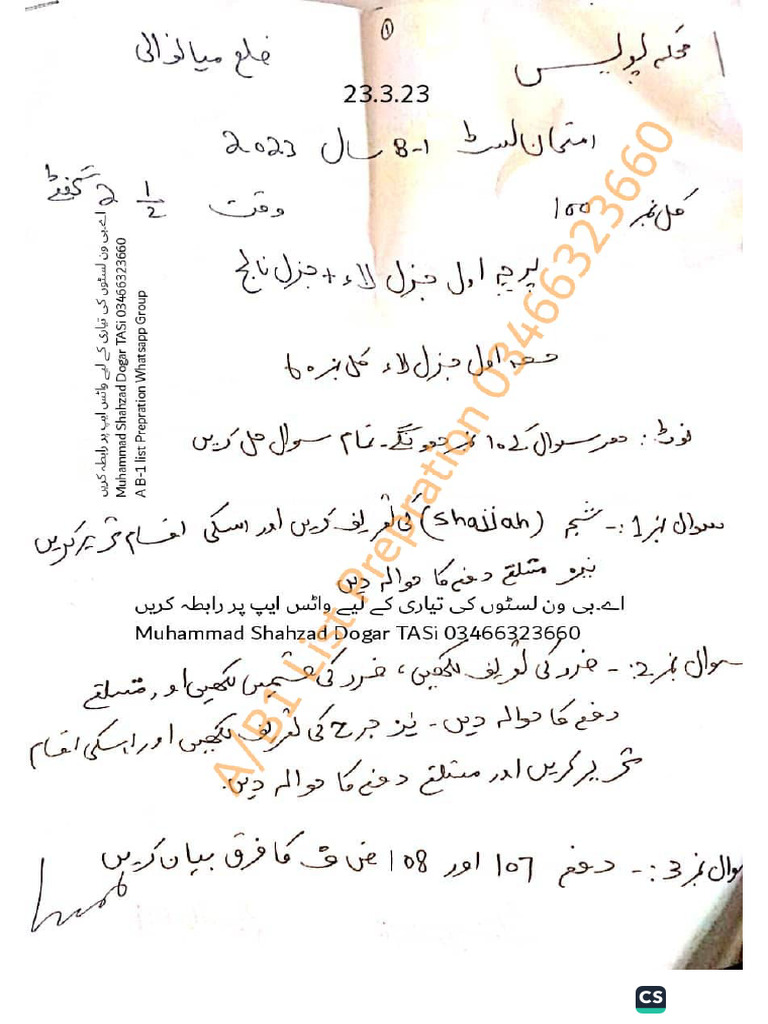 ①
محکمہ پولیس
ضلع میانوالی
23.3.23
امتحان لسٹ B-1 سال 2023
کل نمبر 100
وقت 2 1/2 گھنٹے
پرچہ اول جنرل لاء + جنرل نالج
حصہ اول جنرل لاء کل نمبر 60
نوٹ: ہر سوال کے 10 نمبر ہونگے۔ تمام سوال حل کریں
سوال نمبر 1:- شجہ (Shajjah) کی تعریف کریں اور اسکی اقسام تحریر کریں
نیز متعلقہ دفعہ کا حوالہ دیں
اے۔بی ون لسٹوں کی تیاری کے لیے واٹس ایپ پر رابطہ کریں
Muhammad Shahzad Dogar TASi 03466323660
سوال نمبر 2:- ضرر کی تعریف لکھیں، ضرر کی قسمیں لکھیں اور متعلقہ
دفعہ کا حوالہ دیں۔ نیز جرح کی تعریف لکھیں اور اسکی اقسام
تحریر کریں اور متعلقہ دفعہ کا حوالہ دیں۔
سوال نمبر 3:- دفعہ 107 اور 108 ض ف کا فرق بیان کریں
اے۔بی ون لسٹوں کی تیاری کے لیے واٹس ایپ پر رابطہ کریں
Muhammad Shahzad Dogar TASi 03466323660
A B-1 list Prepration Whatsapp Group
A/B1 List Prepration 03466323660
CS